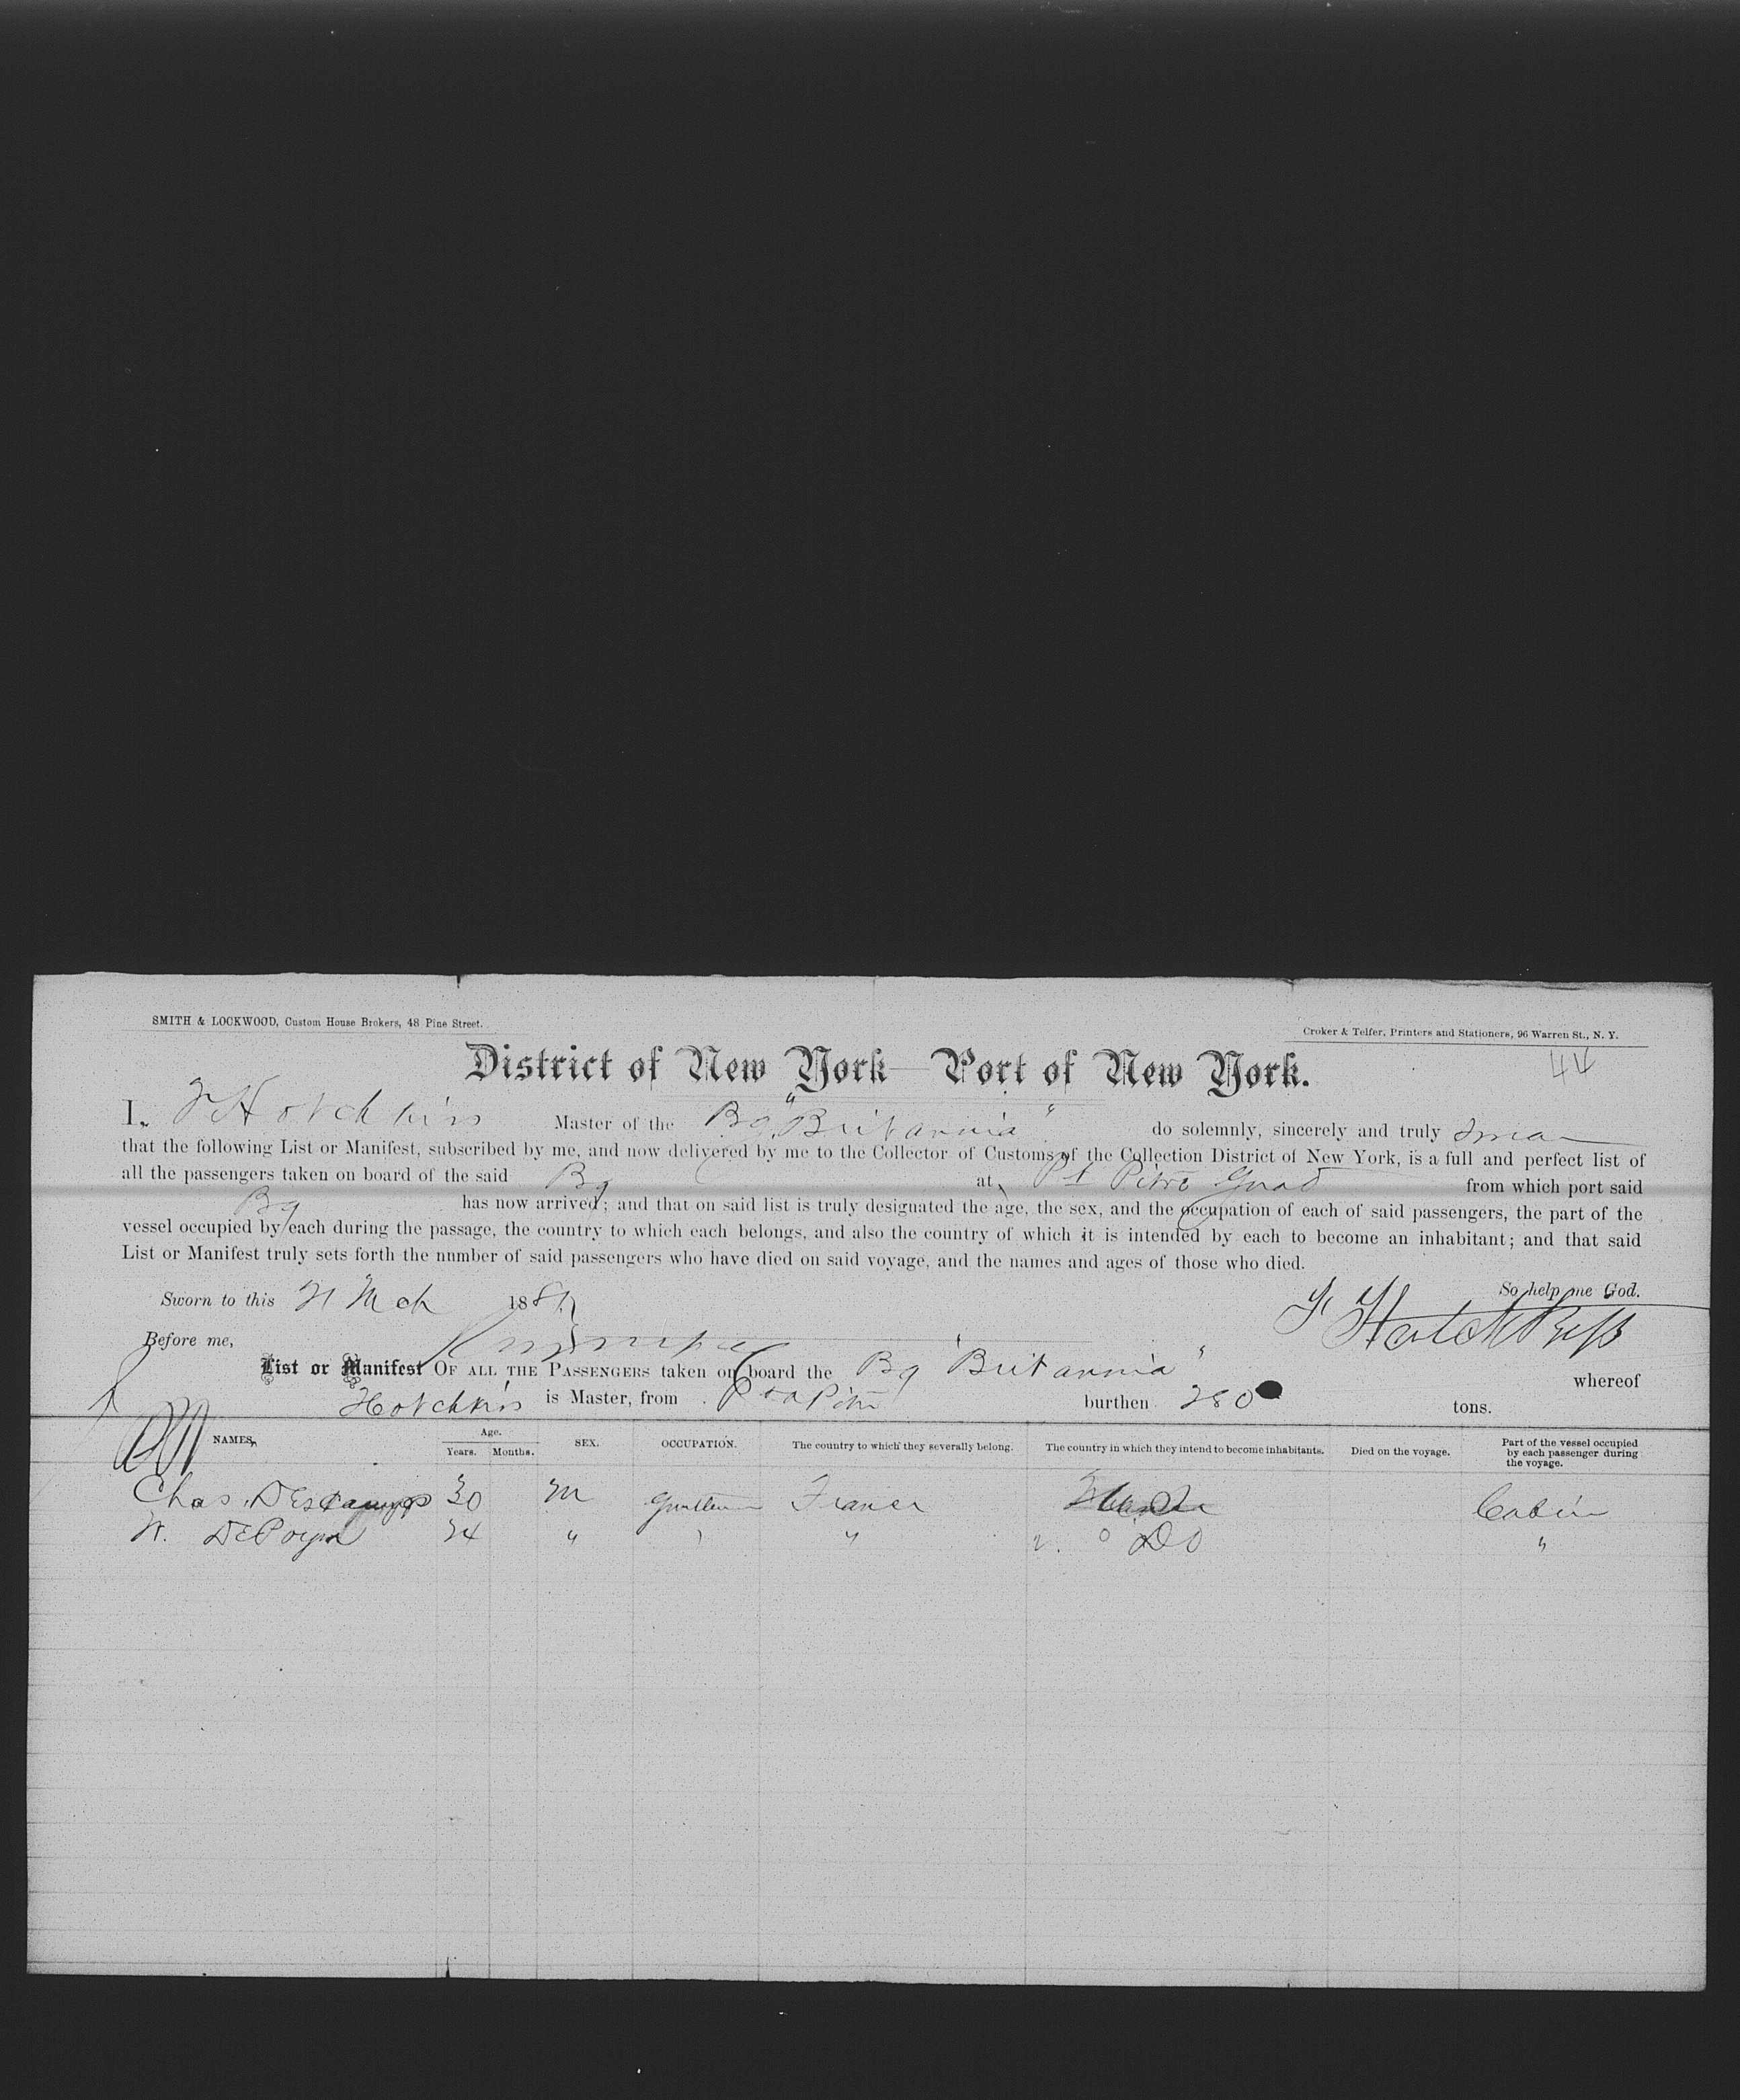 SMITH & LOCKWOOD, Custom House Brokers, 48 Pine Street.
Croker & Telfer, Printers and Stationers, 96 Warren St., N. Y.
44
District of New York—Port of New York.
I, Hotchkiss Master of the Bg "Britannia" do solemnly, sincerely and truly
that the following List or Manifest, subscribed by me, and now delivered by me to the Collector of Customs of the Collection District of New York, is a full and perfect list of
all the passengers taken on board of the said Bg at Pt Pitre Guad from which port said
Bg has now arrived; and that on said list is truly designated the age, the sex, and the occupation of each of said passengers, the part of the
vessel occupied by each during the passage, the country to which each belongs, and also the country of which it is intended by each to become an inhabitant; and that said
List or Manifest truly sets forth the number of said passengers who have died on said voyage, and the names and ages of those who died.
Sworn to this 21 Mch 188 So help me God.
Before me,
List or Manifest OF ALL THE PASSENGERS taken on board the Bg "Britannia" whereof
Hotchkiss is Master, from burthen 280 tons.
NAMES, Age. Years. Months. SEX. OCCUPATION. The country to which they severally belong. The country in which they intend to become inhabitants. Died on the voyage. Part of the vessel occupied by each passenger during the voyage.
Chas. 30 M France Cabin
24 " " Do "